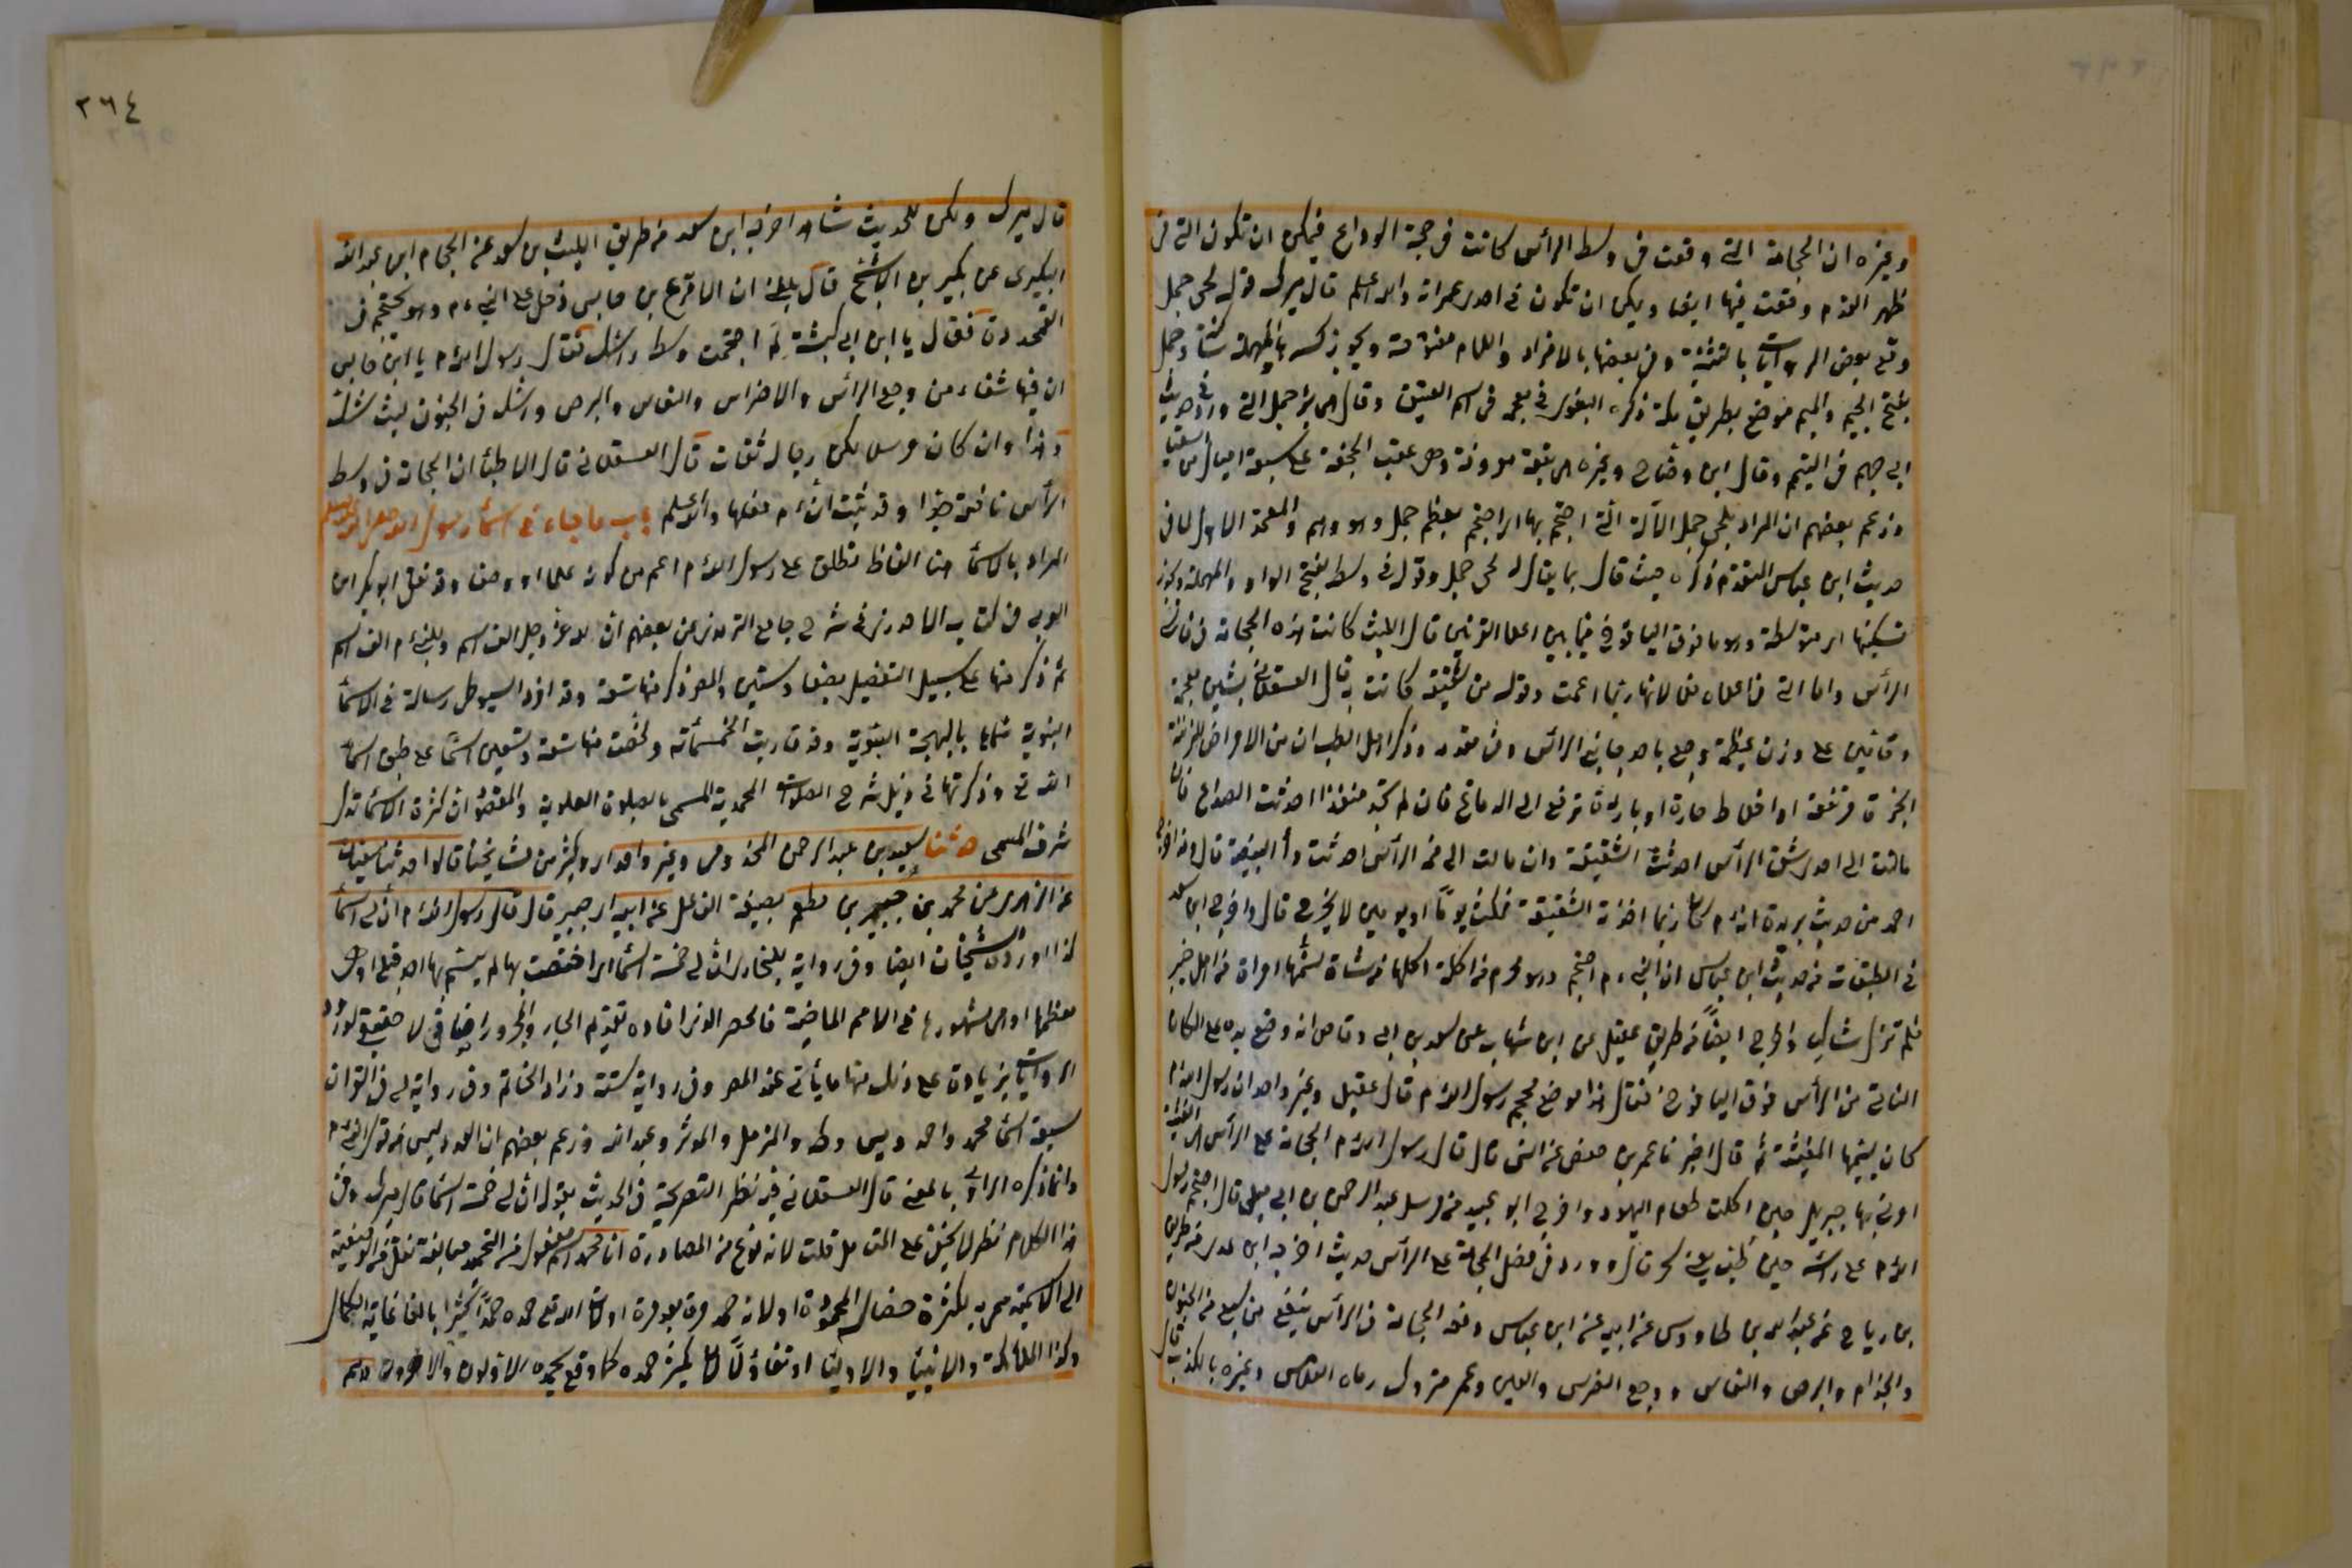 وغيره ان الحجامة التي وقعت في وسط الرأس كانت في حجة الوداع فيمكن ان تكون التي في
ظهر القدم وقعت فيها ايضا ويمكن ان تكون في احدى عمراته والله اعلم قال ميرك قوله لحى جمل
وقع بعض الروايات بالتثنية وفي بعضها بالافراد واللام مفتوحة ويجوز كسرها والمهملة وجمل
بفتح الجيم والميم موضع بطريق مكة ذكره البغوي في معجمه في اسم العقيق وقال هي بئر جمل التي ورد في حديث
ابي جهم في التيمم وقال ابن وضاح وغيره هي بقعة معروفة وهي عقب الجحفة على سبعة اميال من السقيا
وزعم بعضهم ان المراد بلحي جمل الآلة التي احتجم بها اي احتجم بعظم جمل وهو وهم والمعتمد الاول لما في
حديث ابن عباس المتقدم ذكره حيث قال بما يقال له لحي جمل وقوله في وسط بفتح الواو والمهملة ويجوز
تسكينها اي متوسطة وهو ما فوق اليافوخ فيما بين اعلا القرنين قال الليث كانت هذه الحجامة في فاس
الرأس واما التي في اعلاه فلا لانها ربما اعمت وقوله من شقيقة كانت به قال العسقلاني بشين معجمة
وقافين على وزن عظيمة وجع ياخذ جانبي الرأس وفي مقدمه وذكر اهل الطب ان من الامراض المزمنة
ابخرة مرتفعة او اخلاط حارة او باردة ترتفع الى الدماغ فان لم تجد منفذا احدثت الصداع فان
مالت الى احد شقي الرأس احدثت الشقيقة وان مالت الى قمة الرأس احدثت داء البيضة قال وقد اخرج
احمد من حديث بريدة انه م كان ربما اخذته الشقيقة فمكث يوما او يومين لا يخرج قال واخرج ابن سعد
في الطبقات من حديث ابن عباس ان النبي م احتجم وهو محرم من اكلة اكلها من شاة سمتها امراة من اهل خيبر
فلم تزل شاكيا واخرج ايضا من طريق عقيل عن ابن شهاب عن سعد بن ابي وقاص انه وضع يده على المكان
الناتي من الرأس فوق اليافوخ فقال هذا موضع محجم رسول الله م قال عقيل وغير واحد ان رسول الله م
كان يسميها المغيثة ثم قال اخبرنا عمر بن حفص عن انس قال قال رسول الله م الحجامة على الرأس هي المغيثة
امرني بها جبريل حين اكلت طعام اليهود واخرج ابو عبيد من مرسل عبد الرحمن بن ابي ليلى قال احتجم رسول
الله م على رأسه حين طب يعني سحر قال وورد في فضل الحجامة على الرأس حديث اخرجه ابن عدي من طريق
بن رياح عن عبد الله بن طاووس عن ابيه عن ابن عباس رفعه الحجامة في الرأس ينفع من سبع من الجنون
والجذام والبرص والنعاس ووجع الضرس والعين وعمر متروك رماه الفلاس وغيره بالكذب
٣٦٤
قال ميرك ولكن للحديث شاهد اخرجه ابن سعد من طريق الليث بن سعد عن الحجام ابن عبد الله
البكيري عن بكير بن الاشج قال بلغني ان الاقرع بن حابس دخل على النبي م وهو يحتجم في
القمحدوة فقال يا ابن ابي كبشة لم احتجمت وسط رأسك فقال رسول الله م يا ابن حابس
ان فيها شفاء من وجع الرأس والاضراس والنعاس والبرص واشك في الجنون ليث شك
وهذا وان كان مرسل لكن رجاله ثقات قال العسقلاني قال الاطباء ان الحجامة في وسط
الرأس نافعة جدا وقد ثبت انه م فعلها والله اعلم باب ما جاء في اسماء رسول الله صلى الله عليه وسلم
المراد بالاسماء هنا الفاظ تطلق على رسول الله م اعم من كونه علما او وصفا وقد نقل ابو بكر ابن
العربي في كتابه الاحوذي في شرح جامع الترمذي عن بعضهم ان لله عز وجل الف اسم وللنبي م الف اسم
ثم ذكر منها على سبيل التفصيل بضعا وستين والمص ذكر منها تسعة وقد افرد السيوطي رسالة في الاسماء
النبوية سماها بالبهجة السنوية وقد قاربت الخمسمائة ولخصت منها تسعة وتسعين اسما على طبق اسماء
الله تع وذكرتها في ذيل شرح الصلوات المحمدية المسمى بالصلوة العلوية والمقصود ان كثرة الاسماء تدل
شرف المسمى حدثنا سعيد بن عبد الرحمن المخزومي وغير واحد اي وكثير من مشايخنا قالوا حدثنا سفيان
عن الزهري عن محمد بن جبير بن مطعم بصيغة الفاعل عن ابيه اي جبير قال قال رسول الله م ان لي اسماء
كذا اورده الشيخان ايضا وفي رواية للبخاري ان لي خمسة اسماء اي اختصت بها لم يتسم بها احد قبلي او هي
معظمها او هي مشهورها في الامم الماضية فالحصر الذي افاده تقديم الجار والمجرور اضافي لا حقيقي لورود
الروايات بزيادة على ذلك منها ما يأتي عند المص وفي رواية ستة وزاد الخاتم وفي رواية لي في القران
سبعة اسماء محمد واحمد ويس وطه والمزمل والمدثر وعبد الله وزعم بعضهم ان العدد ليس من قول النبي م
وانما ذكره الراوي بالمعنى قال العسقلاني فيه نظر لتصريحه في الحديث بقوله ان لي خمسة اسماء قال ميرك وفي
هذا الكلام نظر لا يخفى على المتأمل قلت لانه نوع من المصادرة انا محمد اسم مفعول من التحميد مبالغة نقل من الوصفية
الى الاسمية سمي به لكثرة خصاله المحمودة او لانه حمد مرة بعد مرة او لان الله تع حمده حمدا كثيرا بالغا غاية الكمال
وكذا الملائكة والانبياء والاولياء او تفاؤلا لان يكثر حمده كما وقع يحمده الاولون والاخرون وهم